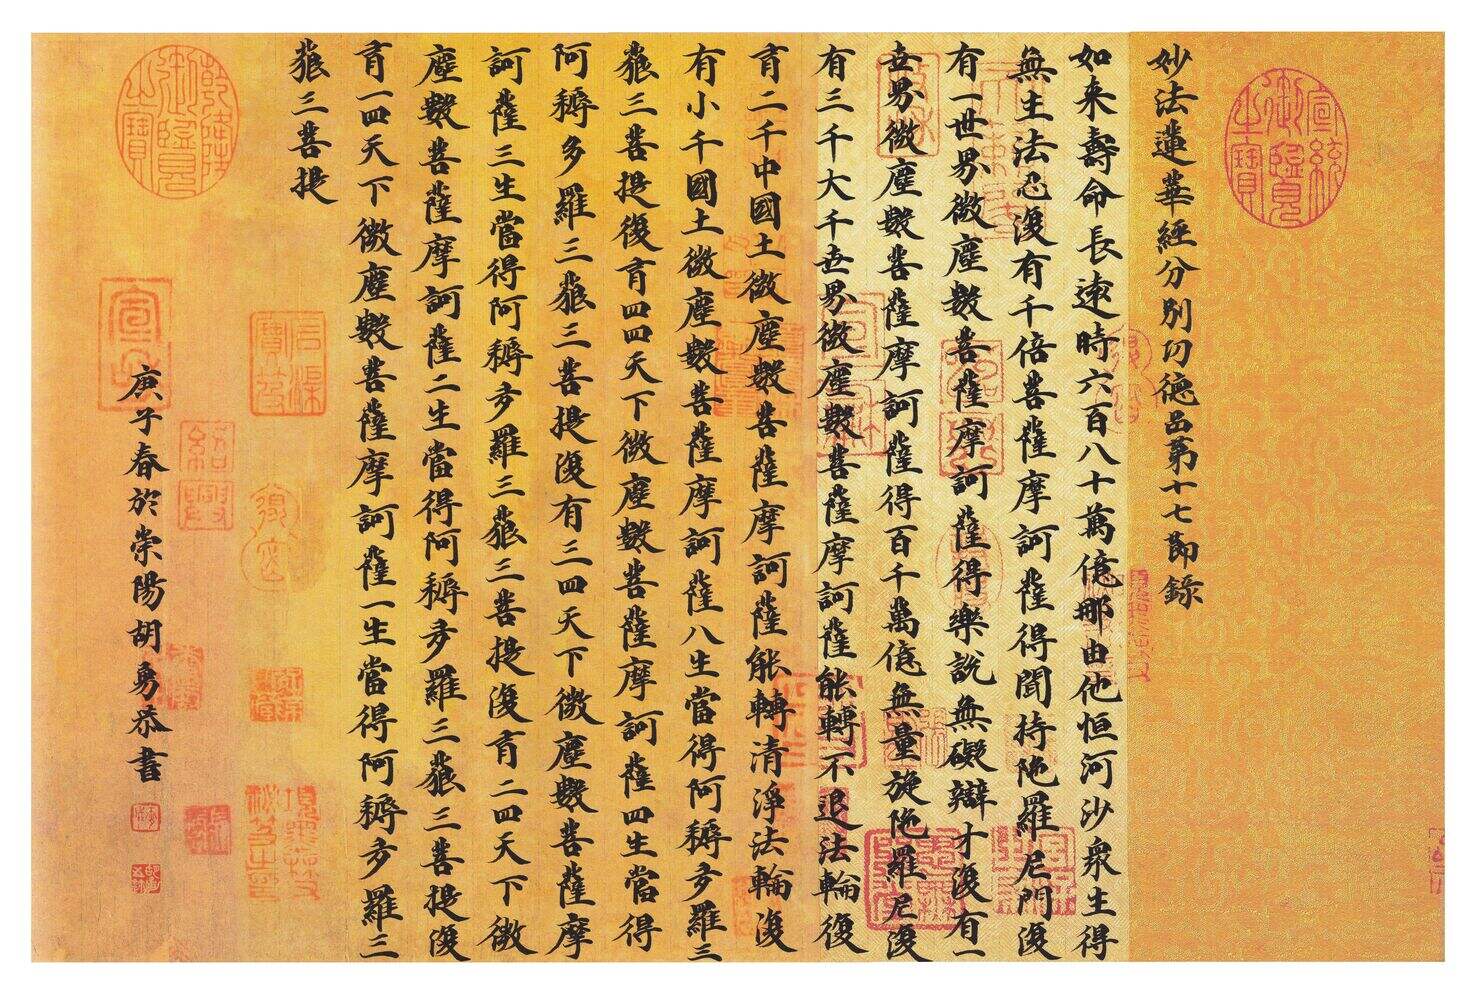 妙法蓮華經分別功德品第十七節錄
如来壽命長遠時六百八十萬億那由他恒河沙衆生得
無生法忍復有千倍菩薩摩訶薩得聞持陁羅尼門復
有一世界微塵數菩薩摩訶薩得樂說無礙辯才復有一
世界微塵數菩薩摩訶薩得百千萬億無量旋陁羅尼復
有三千大千世界微塵數菩薩摩訶薩能轉不退法輪復
有二千中國土微塵數菩薩摩訶薩能轉清淨法輪復
有小千國土微塵數菩薩摩訶薩八生當得阿耨多羅三
藐三菩提復有四四天下微塵數菩薩摩訶薩四生當得
阿耨多羅三藐三菩提復有三四天下微塵數菩薩摩
訶薩三生當得阿耨多羅三藐三菩提復有二四天下微
塵數菩薩摩訶薩二生當得阿耨多羅三藐三菩提復
有一四天下微塵數菩薩摩訶薩一生當得阿耨多羅三
藐三菩提
庚子春於崇陽胡勇恭書
宣統御覽之寶
乾隆御覽之寶